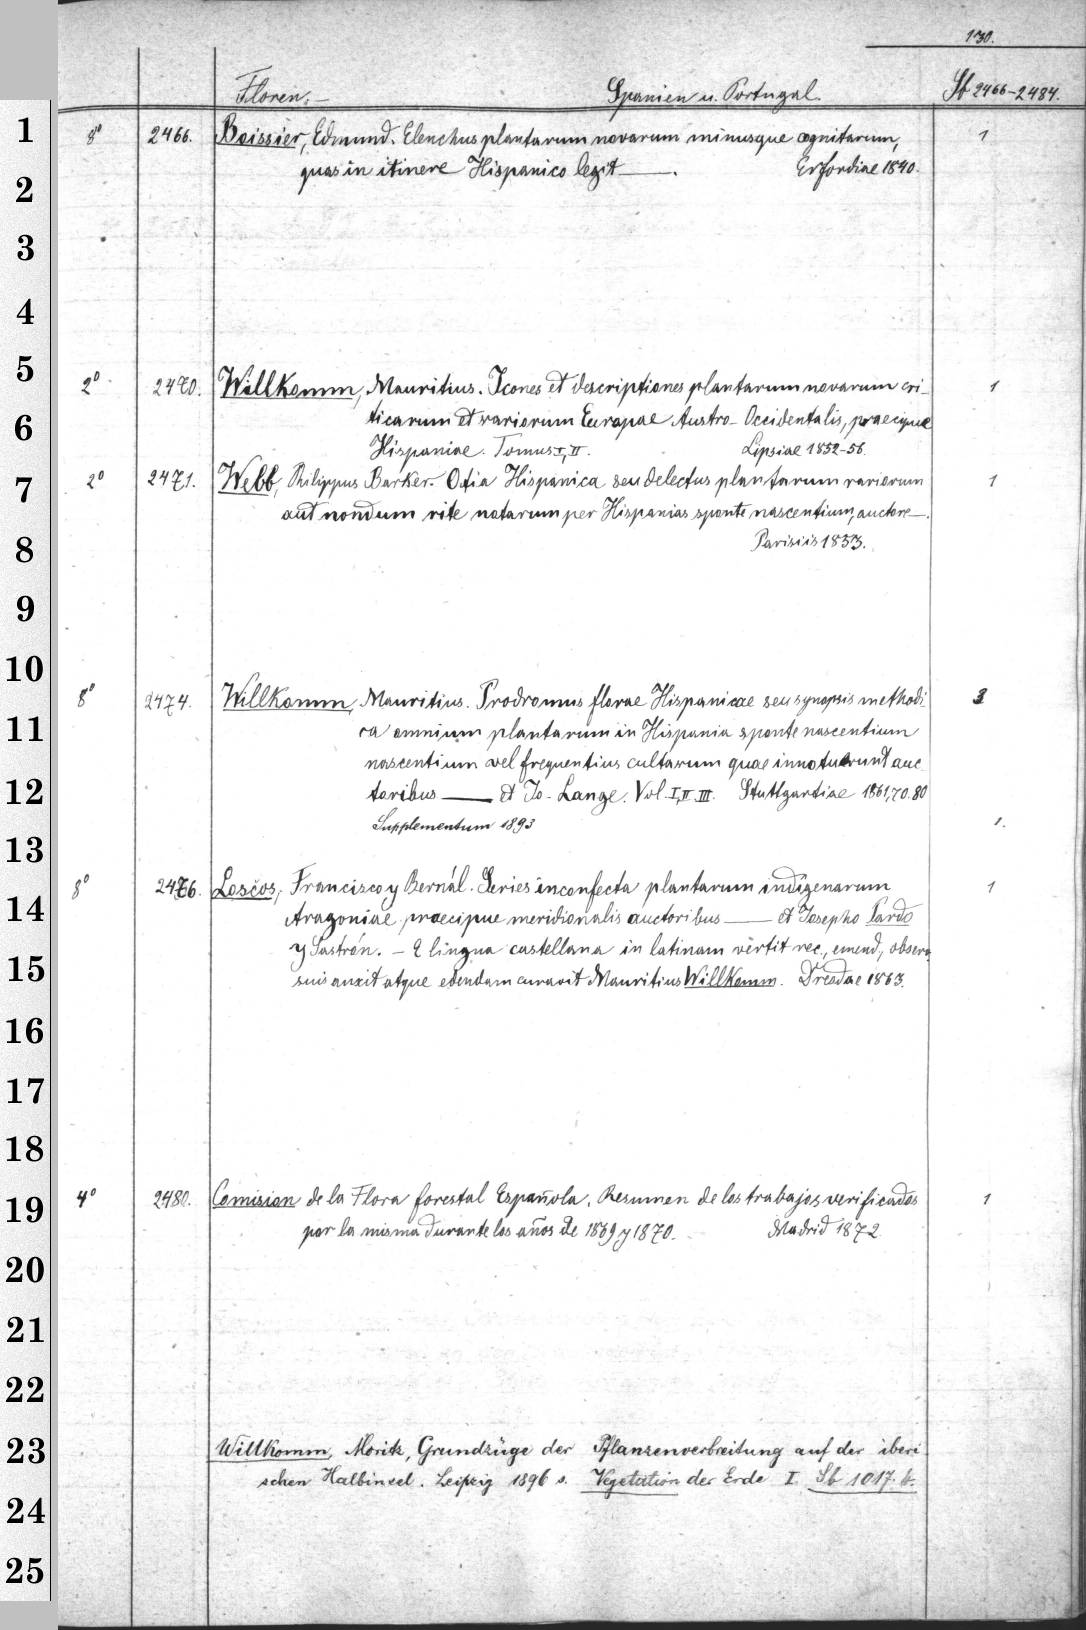 130.
Floren. — Spanien u. Portugal. Sb 2466-2484.
1 8° 2466. Boissier, Edmund. Elenchus plantarum novarum minusque cognitarum, 1
quas in itinere Hispanico legit ——. Erfordiae 1840.
2
3
4
5 2° 2470. Willkomm, Mauritius. Icones et descriptiones plantarum novarum cri- 1
6 ticarum et rariorum Europae Austro-Occidentalis, praecipue
Hispaniae. Tomus I, II. Lipsiae 1852-56.
7 2° 2471. Webb, Philippus Barker. Otia Hispanica seu delectus plantarum rariorum 1
aut nondum rite notarum per Hispanias sponte nascentium, auctore —.
8 Parisiis 1853.
9
10
8° 2474. Willkomm, Mauritius. Prodromus florae Hispanicae seu synopsis methodi- 3
11 ca omnium plantarum in Hispania sponte nascentium
nascentium vel frequentius cultarum quae innotuerunt auc-
12 toribus —— et Jo. Lange. Vol. I, II, III. Stuttgartiae 1861, 70. 80
Supplementum 1893 1.
13
8° 2476. Loscos, Francisco y Bernál. Series inconfecta plantarum indigenarum 1
14 Aragoniae praecipue meridionalis auctoribus —— et Josepho Pardo
y Sastrón. — E lingua castellana in latinam vertit rec., emend., observ.
15 suis auxit atque edendam curavit Mauritius Willkomm. Dresdae 1863.
16
17
18
19 4° 2480. Comision de la Flora forestal Española. Resumen de los trabajos verificados 1
por la misma durante los años de 1869 y 1870. Madrid 1872.
20
21
22
23 Willkomm, Moritz, Grundzüge der Pflanzenverbreitung auf der iberi
schen Halbinsel. Leipzig 1896 s. Vegetation der Erde I Sb 1017. b.
24
25